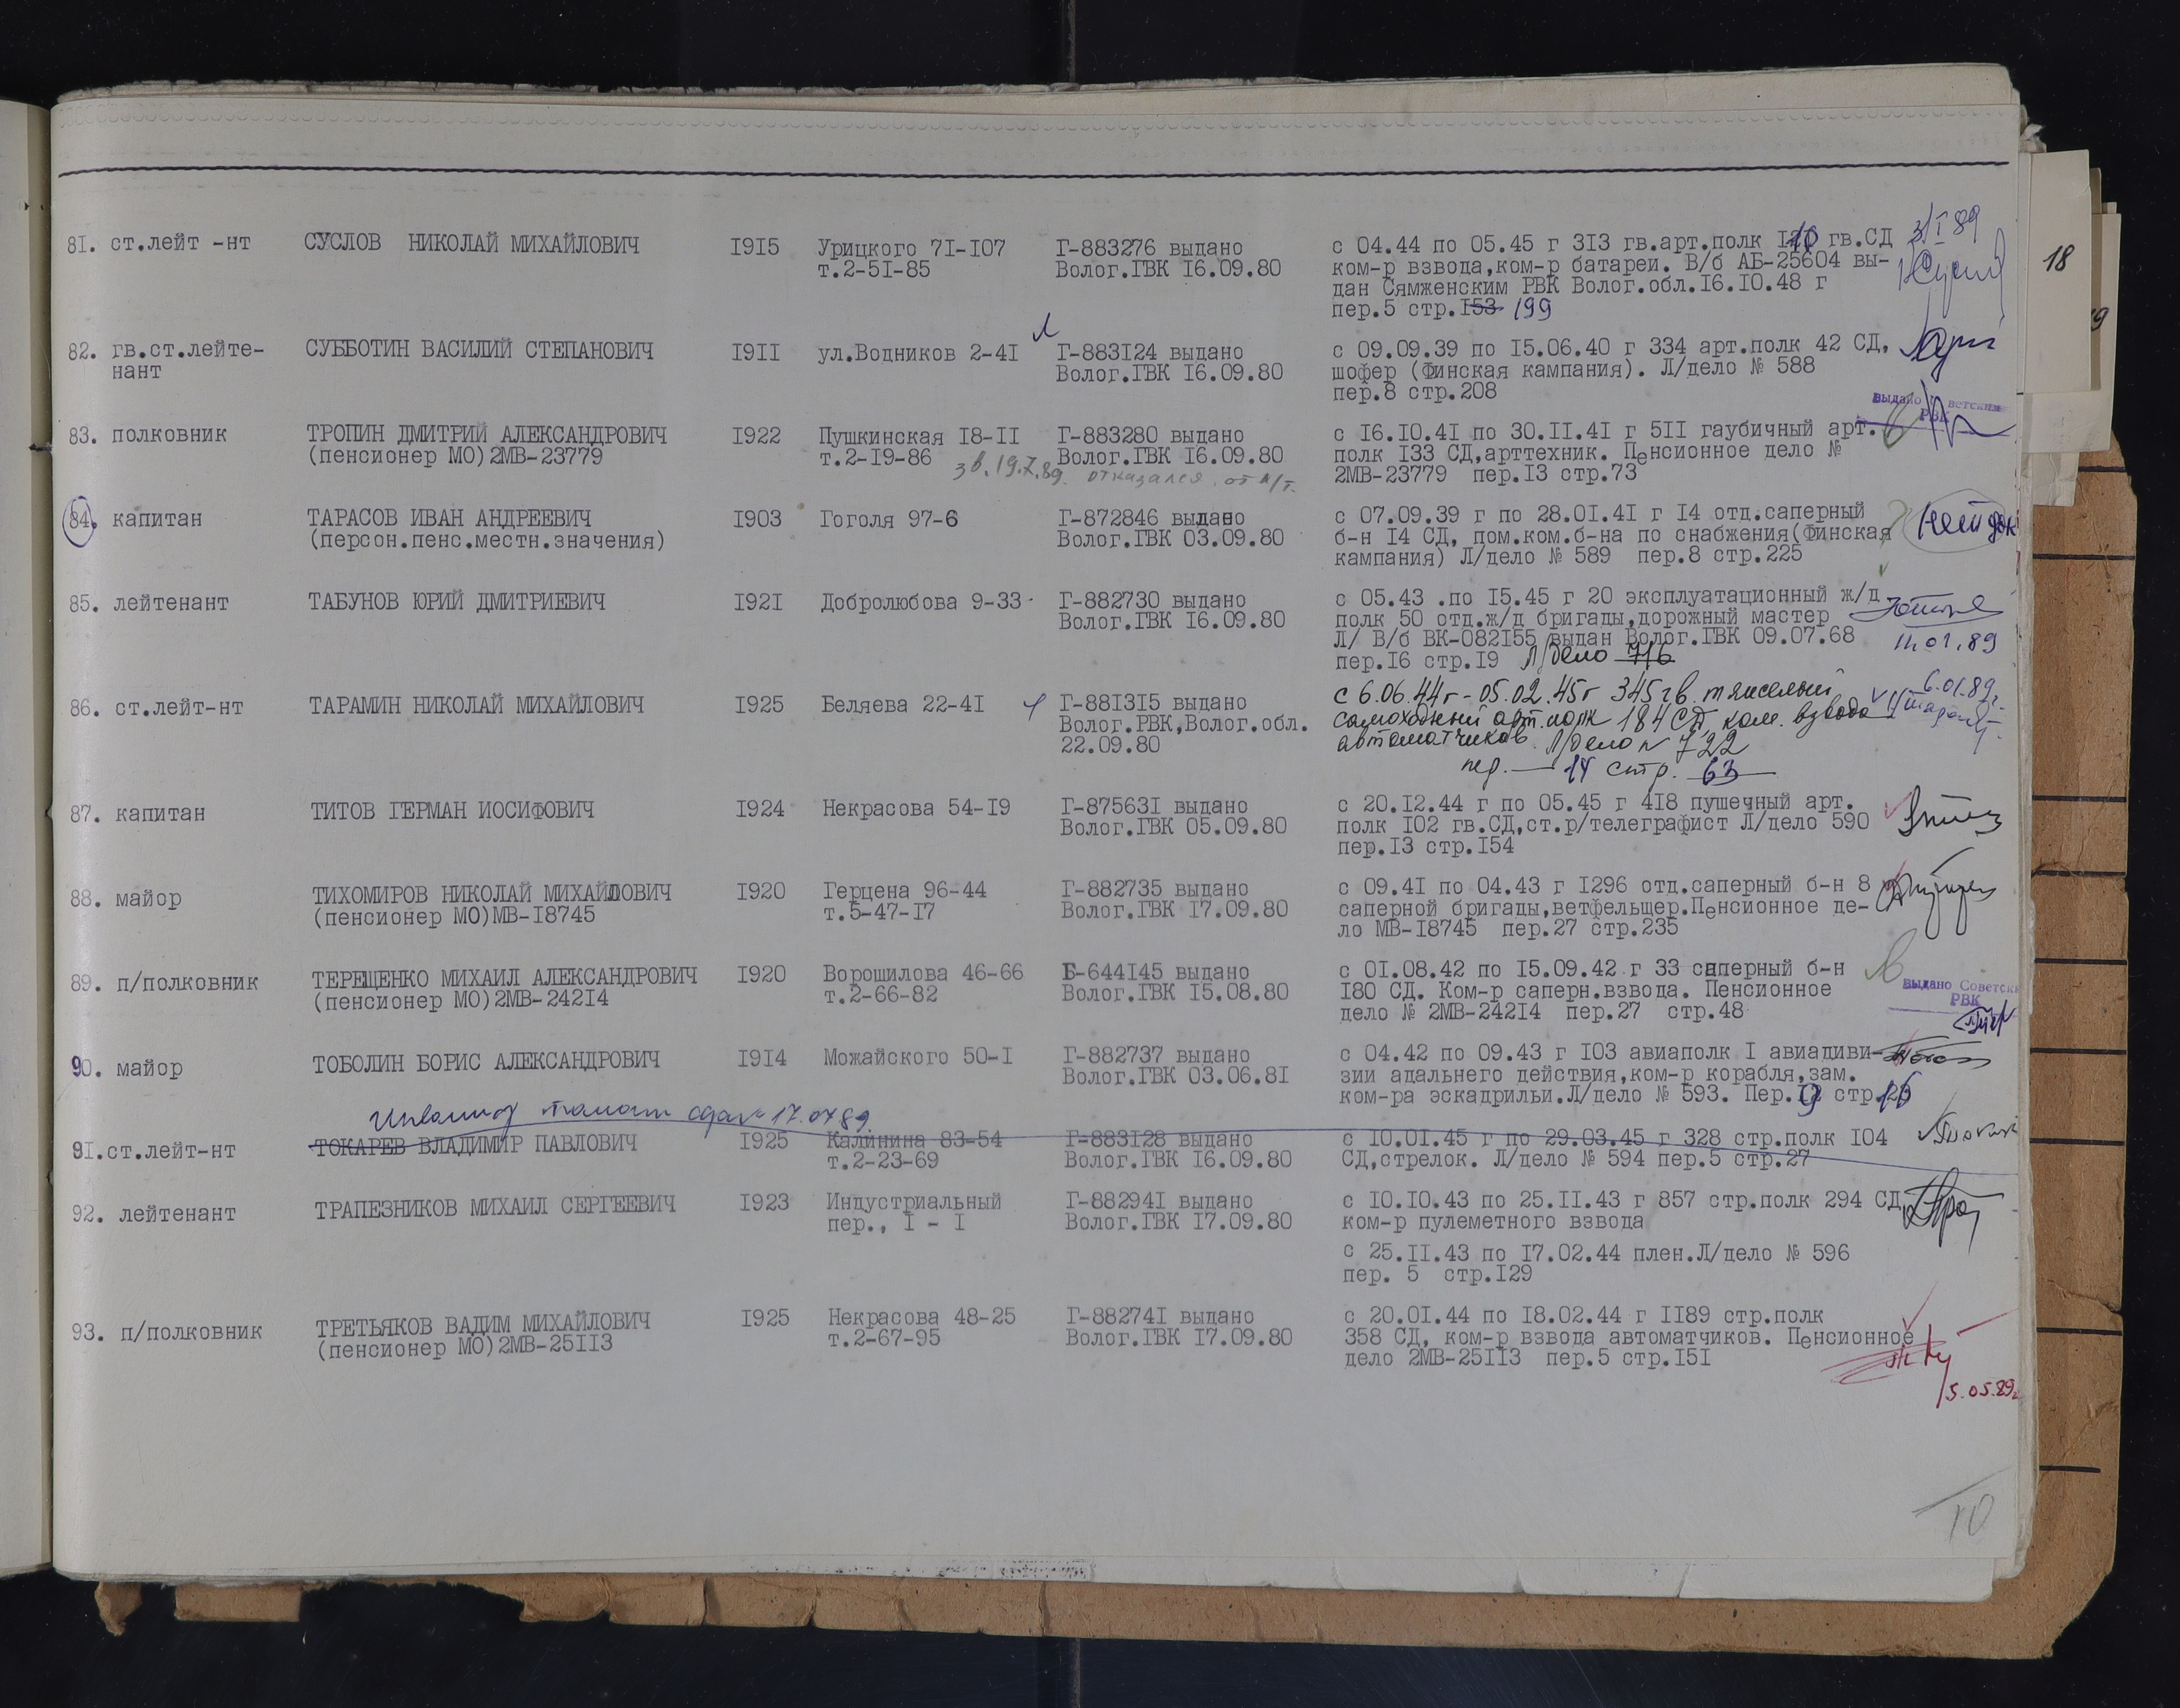 81. ст.лейт -нт СУСЛОВ НИКОЛАЙ МИХАЙЛОВИЧ I9I5 Урицкого 7I-I07 Г-883276 выдано с 04.44 по 05.45 г 3I3 гв.арт.полк гв.СД 3/I 89
т.2-5I-85 Волог.ГВК I6.09.80 ком-р взвода,ком-р батареи. В/б АБ-25604 вы-
дан Сямженским РВК Волог.обл.I6.I0.48 г
пер.5 стр.I53 199
18
82. гв.ст.лейте- СУББОТИН ВАСИЛИЙ СТЕПАНОВИЧ I9II ул.Водников 2-4I Г-883I24 выдано с 09.09.39 по I5.06.40 г 334 арт.полк 42 СД,
нант Волог.ГВК I6.09.80 шофер (Финская кампания). Л/дело № 588
пер.8 стр.208
выдано ветским
РВК
83. полковник ТРОПИН ДМИТРИЙ АЛЕКСАНДРОВИЧ I922 Пушкинская I8-II Г-883280 выдано с I6.I0.4I по 30.II.4I г 5II гаубичный арт.
(пенсионер МО)2МВ-23779 т.2-I9-86 Волог.ГВК I6.09.80 полк I33 СД,арттехник. Пенсионное дело №
зв. 19.7.89. отказался от 2МВ-23779 пер.I3 стр.73
84. капитан ТАРАСОВ ИВАН АНДРЕЕВИЧ I903 Гоголя 97-6 Г-872846 выдано с 07.09.39 г по 28.0I.4I г I4 отд.саперный нет док
(персон.пенс.местн.значения) Волог.ГВК 03.09.80 б-н I4 СД, пом.ком.б-на по снабжения(Финская
кампания) Л/дело № 589 пер.8 стр.225
85. лейтенант ТАБУНОВ ЮРИЙ ДМИТРИЕВИЧ I92I Добролюбова 9-33 Г-882730 выдано с 05.43 .по I5.45 г 20 эксплуатационный ж/д
Волог.ГВК I6.09.80 полк 50 отд.ж/д бригады,дорожный мастер
Л/ В/б ВК-082I55 выдан Волог.ГВК 09.07.68 11.01.89
пер.I6 стр.I9 Л/дело 716
86. ст.лейт-нт ТАРАМИН НИКОЛАЙ МИХАЙЛОВИЧ I925 Беляева 22-4I Г-88I3I5 выдано с 6.06.44г - 05.02.45г 345 гв. тяжелый 6.01.89г.
Волог.РВК,Волог.обл. самоходный арт.полк 184 СД, ком. взвода
22.09.80 автоматчиков. Л/дело № 722
пер. 14 стр. 63
87. капитан ТИТОВ ГЕРМАН ИОСИФОВИЧ I924 Некрасова 54-I9 Г-87563I выдано с 20.I2.44 г по 05.45 г 4I8 пушечный арт.
Волог.ГВК 05.09.80 полк I02 гв.СД,ст.р/телеграфист Л/дело 590
пер.I3 стр.I54
88. майор ТИХОМИРОВ НИКОЛАЙ МИХАЙЛОВИЧ I920 Герцена 96-44 Г-882735 выдано с 09.4I по 04.43 г I296 отд.саперный б-н 8
(пенсионер МО)МВ-I8745 т.5-47-I7 Волог.ГВК I7.09.80 саперной бригады,ветфельщер.Пенсионное де-
ло МВ-I8745 пер.27 стр.235
89. п/полковник ТЕРЕЩЕНКО МИХАИЛ АЛЕКСАНДРОВИЧ I920 Ворошилова 46-66 Б-644I45 выдано с 0I.08.42 по I5.09.42 г 33 саперный б-н
(пенсионер МО)2МВ-242I4 т.2-66-82 Волог.ГВК I5.08.80 I80 СД. Ком-р саперн.взвода. Пенсионное выдано Советски
дело № 2МВ-242I4 пер.27 стр.48 РВК
90. майор ТОБОЛИН БОРИС АЛЕКСАНДРОВИЧ I9I4 Можайского 50-I Г-882737 выдано с 04.42 по 09.43 г I03 авиаполк I авиадиви-
Волог.ГВК 03.06.8I зии адальнего действия,ком-р корабля,зам.
ком-ра эскадрильи.Л/дело № 593. Пер. 9 стр. 16
91.ст.лейт-нт ТОКАРЕВ ВЛАДИМИР ПАВЛОВИЧ I925 Калинина 83-54 Г-883I28 выдано с I0.0I.45 г по 29.03.45 г 328 стр.полк I04
т.2-23-69 Волог.ГВК I6.09.80 СД,стрелок. Л/дело № 594 пер.5 стр.27
92. лейтенант ТРАПЕЗНИКОВ МИХАИЛ СЕРГЕЕВИЧ I923 Индустриальный Г-88294I выдано с I0.I0.43 по 25.II.43 г 857 стр.полк 294 СД,
пер., I - I Волог.ГВК I7.09.80 ком-р пулеметного взвода
с 25.II.43 по I7.02.44 плен.Л/дело № 596
пер. 5 стр.I29
93. п/полковник ТРЕТЬЯКОВ ВАДИМ МИХАЙЛОВИЧ I925 Некрасова 48-25 Г-88274I выдано с 20.0I.44 по I8.02.44 г II89 стр.полк
(пенсионер МО)2МВ-25II3 т.2-67-95 Волог.ГВК I7.09.80 358 СД, ком-р взвода автоматчиков. Пенсионное
дело 2МВ-25II3 пер.5 стр.I5I
5.05.89г
10